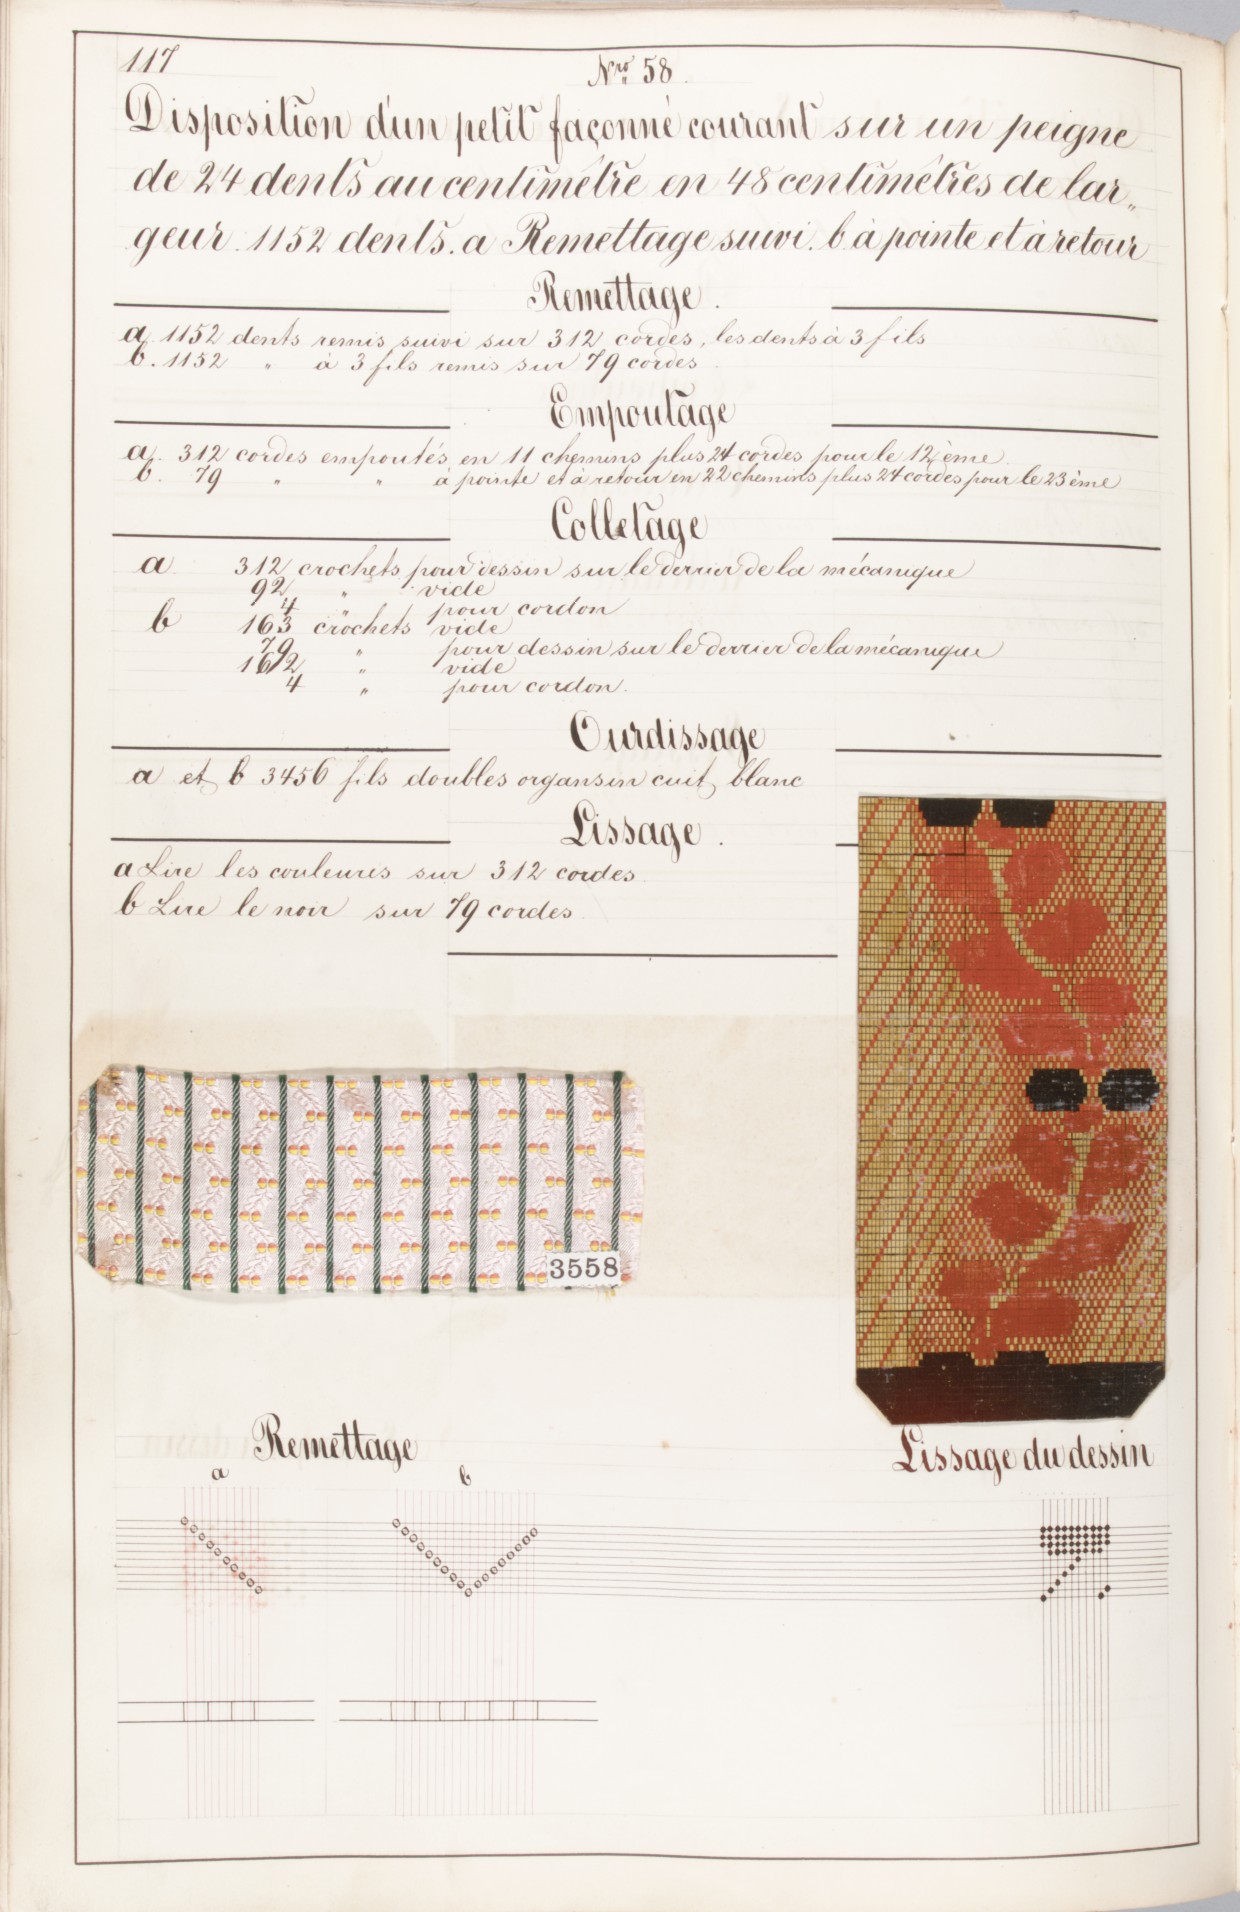 117
Nro 58
Disposition d'un petit façonné courant sur un peigne
de 24 dents au centimêtre en 48 centimêtres de lar„
geur. 1152 dents. a Remettage suivi. b. à pointe et à retour
Remettage.
a. 1152 dents remis suivi sur 312 cordes, les dents à 3 fils
b. 1152 „ à 3 fils remis sur 79 cordes
Empoutage
a. 312 cordes empoutés en 11 chemins plus 24 cordes pour le 12ème
b. 79 „ „ à pointe et à retour en 22 chemins plus 24 cordes pour le 23ème
Colletage
a 312 crochets pour dessin sur le derrier de la mécanique
92 „ vide
4 „ pour cordon
b 163 crochets vide
79 „ pour dessin sur le derrier de la mécanique
162 „ vide
4 „ pour cordon.
Ourdissage
a et b 3456 fils doubles organsin cuit blanc
Lissage.
a Lire les couleures sur 312 cordes
b Lire le noir sur 79 cordes
3558
Remettage
a b
Lissage du dessin